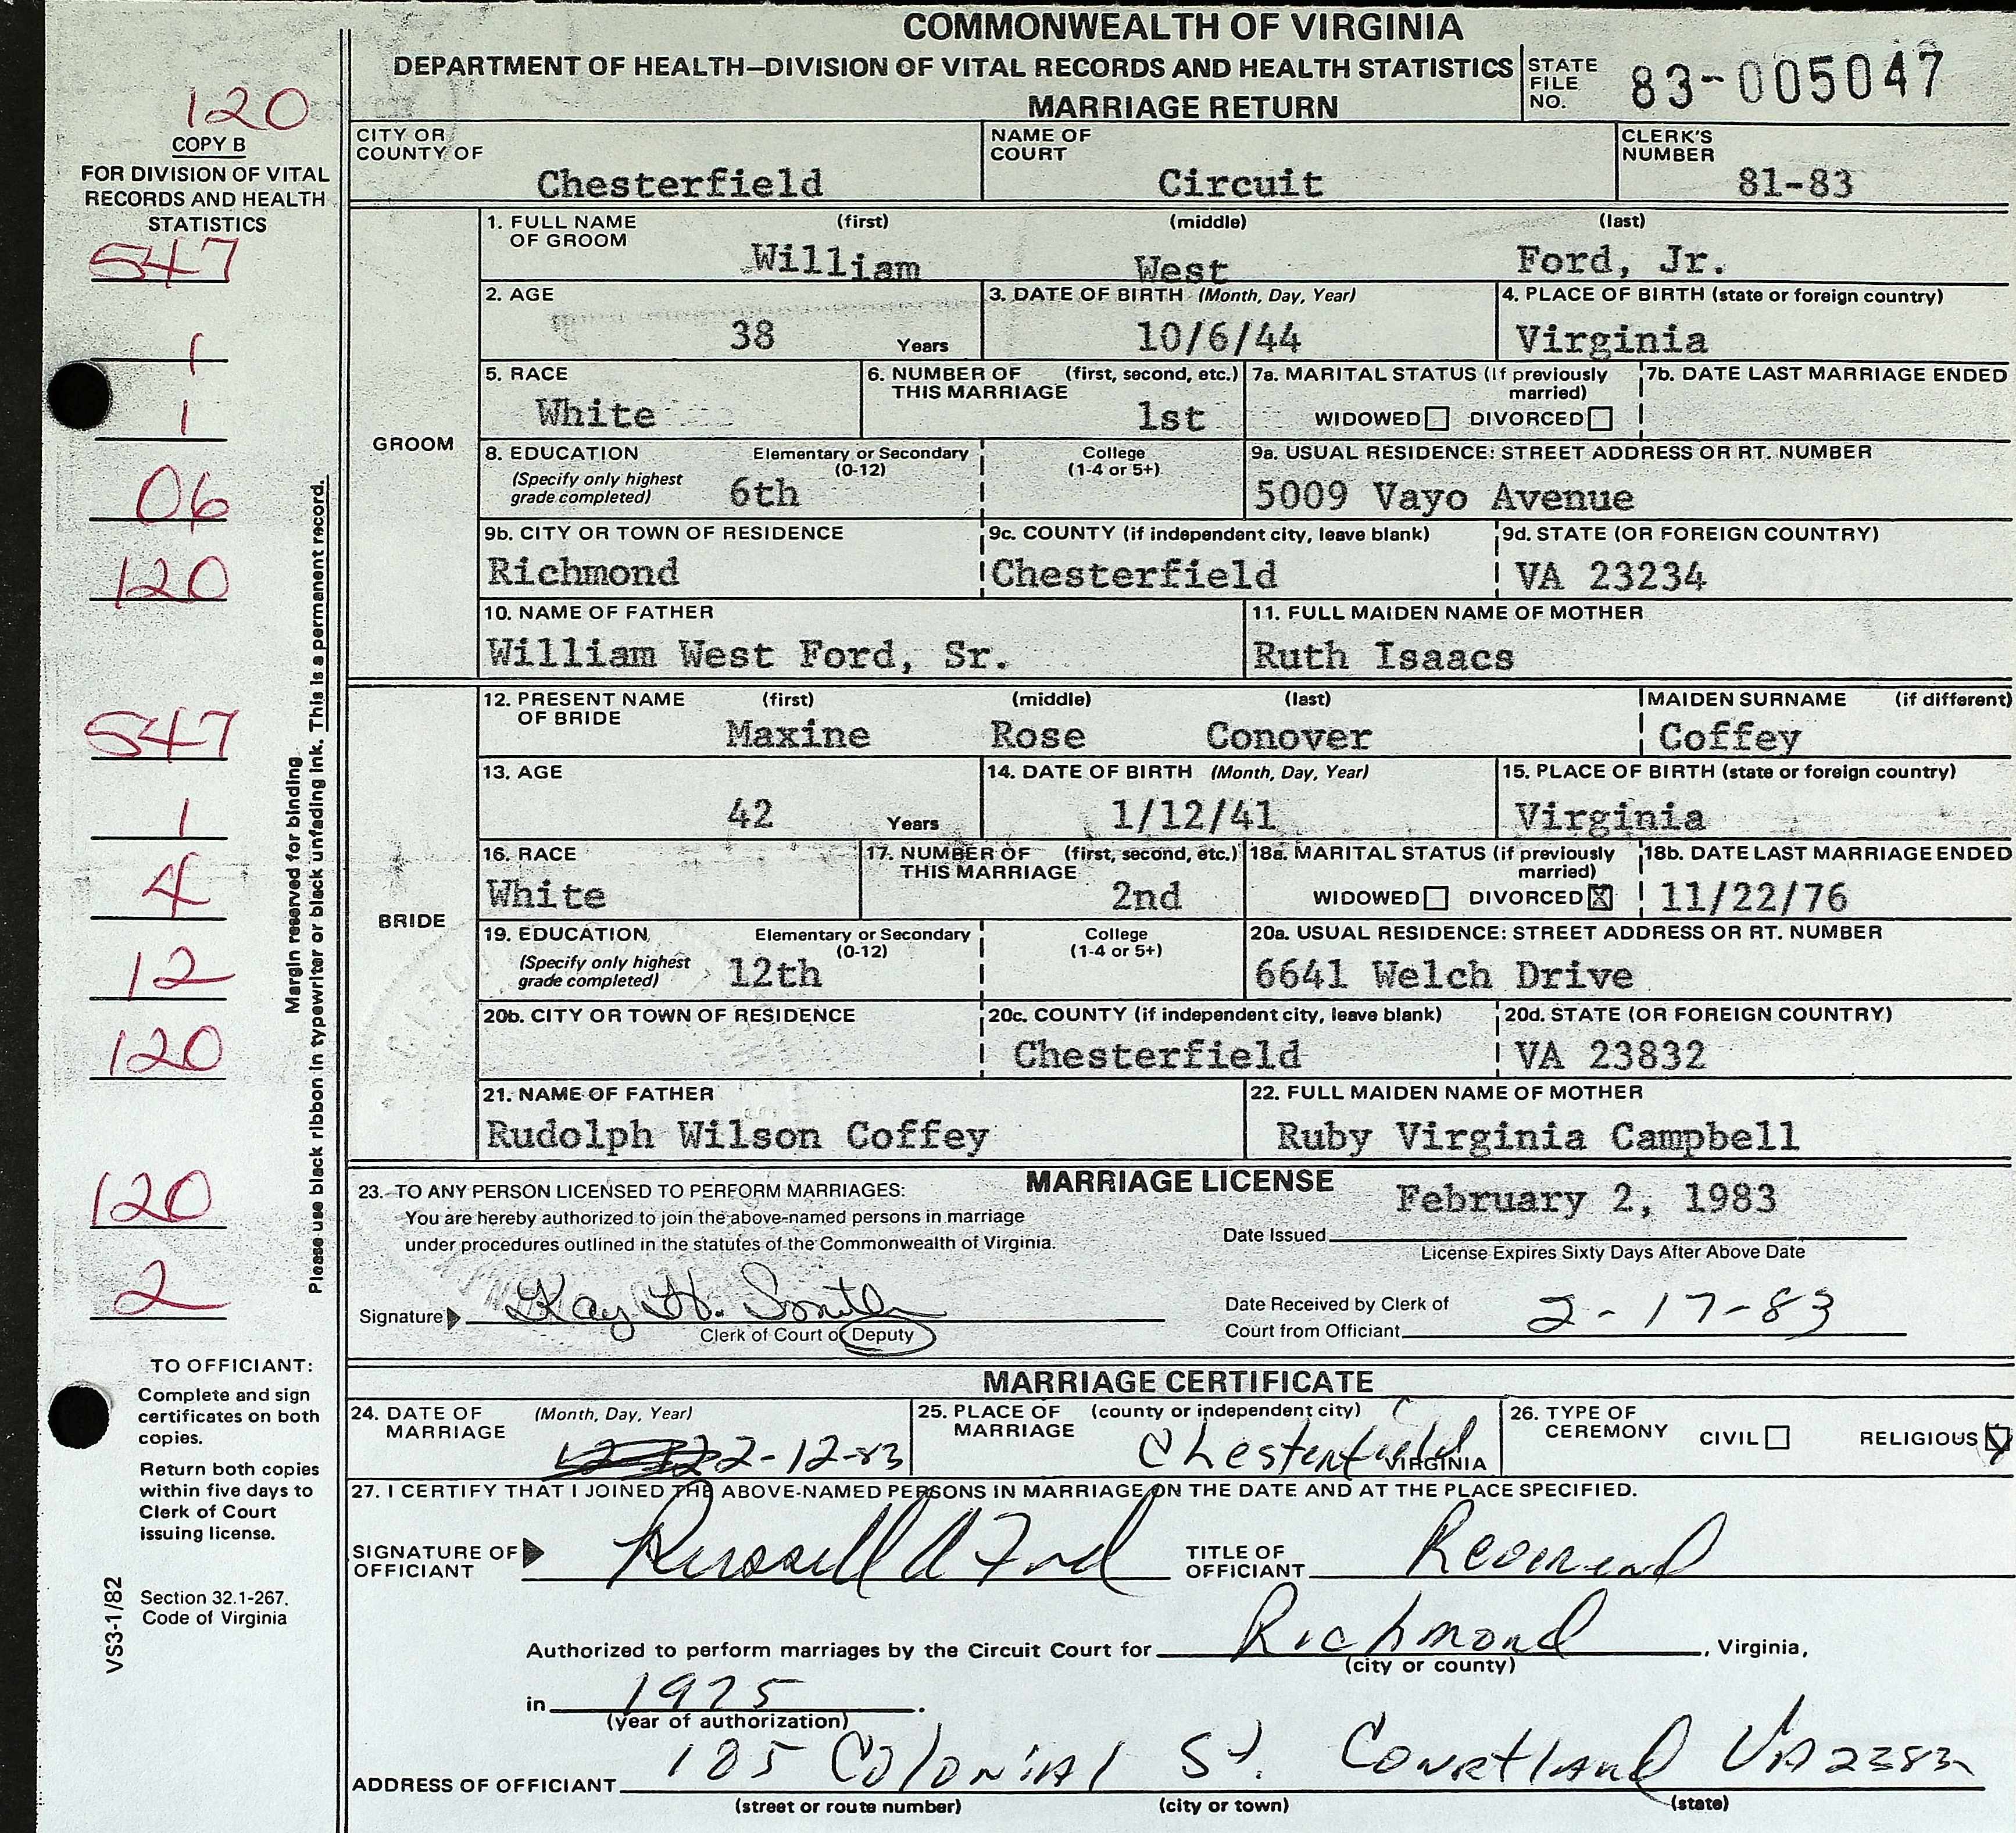 COMMONWEALTH OF VIRGINIA
DEPARTMENT OF HEALTH—DIVISION OF VITAL RECORDS AND HEALTH STATISTICS
MARRIAGE RETURN
STATE FILE NO. 83-005047
120
COPY B
FOR DIVISION OF VITAL
RECORDS AND HEALTH
STATISTICS
547
1
1
06
120
547
1
4
12
120
120
2
Margin reserved for binding
Please use black ribbon in typewriter or black unfading ink. This is a permanent record.
CITY OR COUNTY OF Chesterfield
NAME OF COURT Circuit
CLERK'S NUMBER 81-83
GROOM
1. FULL NAME OF GROOM (first) (middle) (last)
William West Ford, Jr.
2. AGE 38 Years
3. DATE OF BIRTH (Month, Day, Year) 10/6/44
4. PLACE OF BIRTH (state or foreign country) Virginia
5. RACE White
6. NUMBER OF THIS MARRIAGE (first, second, etc.) 1st
7a. MARITAL STATUS (if previously married) WIDOWED DIVORCED
7b. DATE LAST MARRIAGE ENDED
8. EDUCATION (Specify only highest grade completed) Elementary or Secondary (0-12) 6th College (1-4 or 5+)
9a. USUAL RESIDENCE: STREET ADDRESS OR RT. NUMBER 5009 Vayo Avenue
9b. CITY OR TOWN OF RESIDENCE Richmond
9c. COUNTY (if independent city, leave blank) Chesterfield
9d. STATE (OR FOREIGN COUNTRY) VA 23234
10. NAME OF FATHER William West Ford, Sr.
11. FULL MAIDEN NAME OF MOTHER Ruth Isaacs
BRIDE
12. PRESENT NAME OF BRIDE (first) (middle) (last) MAIDEN SURNAME (if different)
Maxine Rose Conover Coffey
13. AGE 42 Years
14. DATE OF BIRTH (Month, Day, Year) 1/12/41
15. PLACE OF BIRTH (state or foreign country) Virginia
16. RACE White
17. NUMBER OF THIS MARRIAGE (first, second, etc.) 2nd
18a. MARITAL STATUS (if previously married) WIDOWED DIVORCED X
18b. DATE LAST MARRIAGE ENDED 11/22/76
19. EDUCATION (Specify only highest grade completed) Elementary or Secondary (0-12) 12th College (1-4 or 5+)
20a. USUAL RESIDENCE: STREET ADDRESS OR RT. NUMBER 6641 Welch Drive
20b. CITY OR TOWN OF RESIDENCE
20c. COUNTY (if independent city, leave blank) Chesterfield
20d. STATE (OR FOREIGN COUNTRY) VA 23832
21. NAME OF FATHER Rudolph Wilson Coffey
22. FULL MAIDEN NAME OF MOTHER Ruby Virginia Campbell
MARRIAGE LICENSE
23. TO ANY PERSON LICENSED TO PERFORM MARRIAGES:
You are hereby authorized to join the above-named persons in marriage
under procedures outlined in the statutes of the Commonwealth of Virginia.
Date Issued February 2, 1983
License Expires Sixty Days After Above Date
Signature Kay H. Smith
Clerk of Court or Deputy
Date Received by Clerk of Court from Officiant 2-17-83
TO OFFICIANT:
Complete and sign
certificates on both
copies.
Return both copies
within five days to
Clerk of Court
issuing license.
Section 32.1-267,
Code of Virginia
VS3-1/82
MARRIAGE CERTIFICATE
24. DATE OF MARRIAGE (Month, Day, Year) 2-12-83
25. PLACE OF MARRIAGE (county or independent city) Chesterfield VIRGINIA
26. TYPE OF CEREMONY CIVIL RELIGIOUS
27. I CERTIFY THAT I JOINED THE ABOVE-NAMED PERSONS IN MARRIAGE ON THE DATE AND AT THE PLACE SPECIFIED.
SIGNATURE OF OFFICIANT Russell A Ford
TITLE OF OFFICIANT Reverend
Authorized to perform marriages by the Circuit Court for Richmond, Virginia,
(city or county)
in 1975.
(year of authorization)
ADDRESS OF OFFICIANT 185 Colonial St. Courtland VA
(street or route number) (city or town) (state)